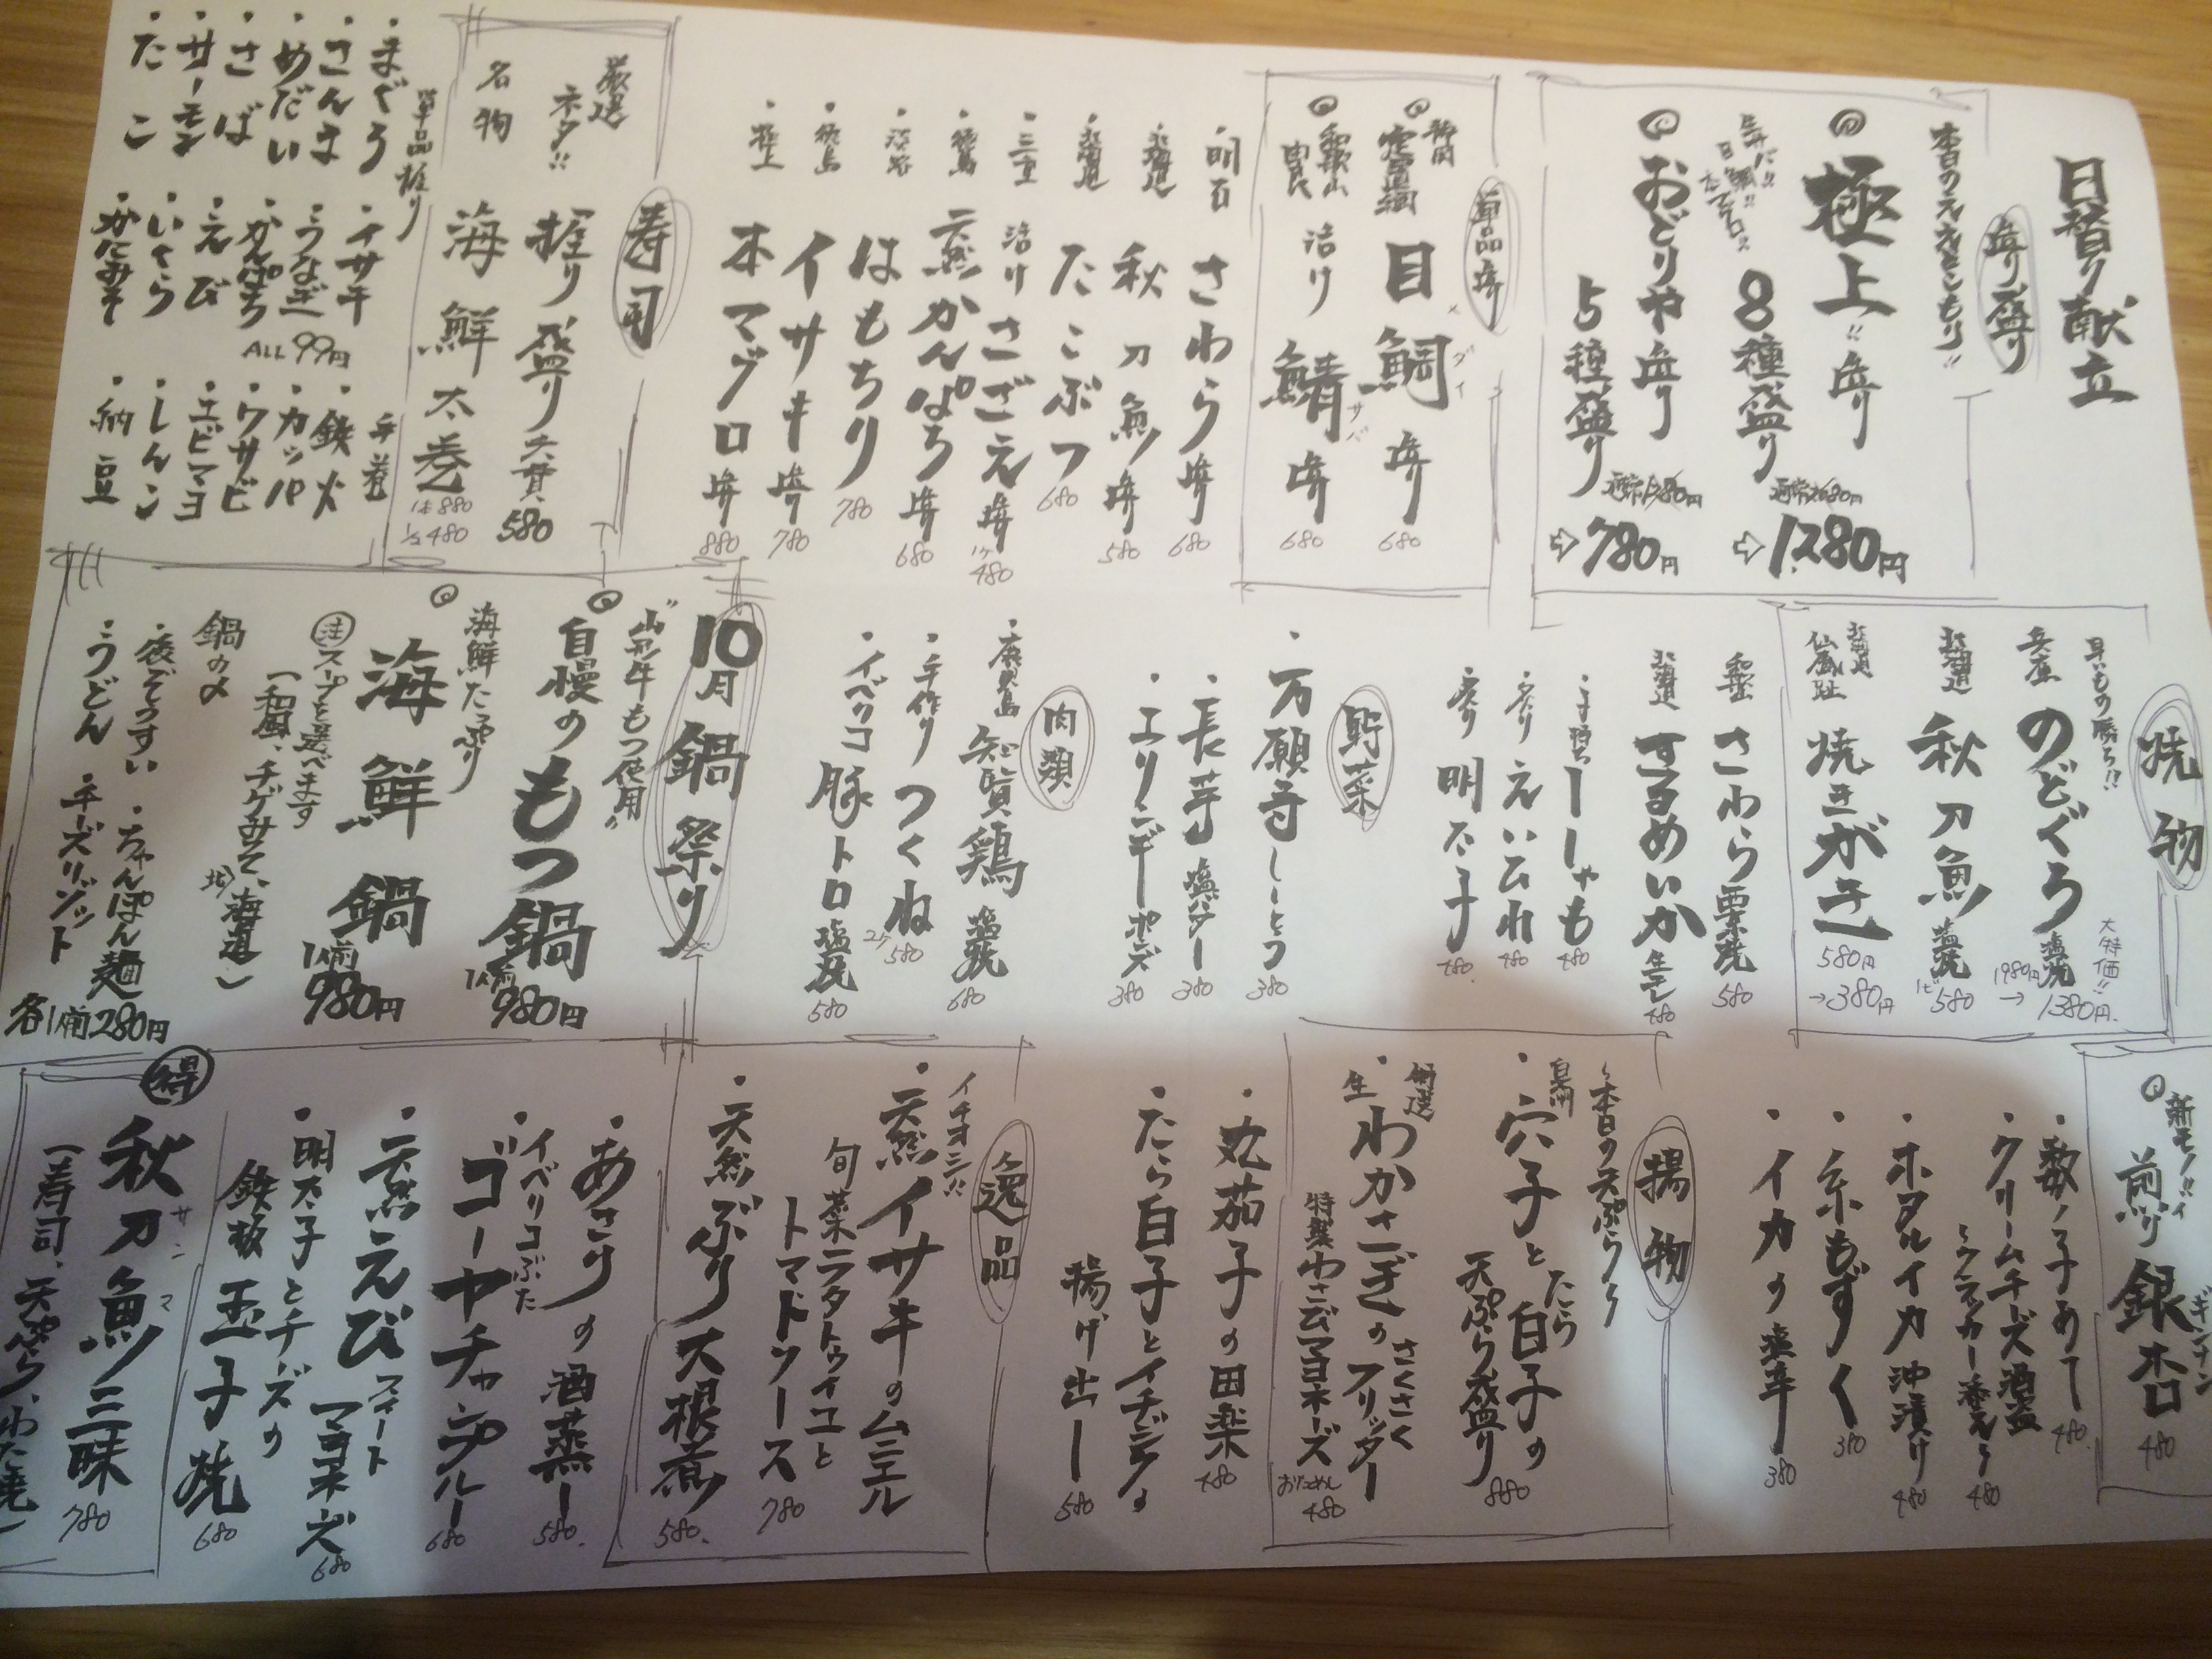 日替り献立
造り盛り
本日のええとこもり!!
極上!! 造り
8種盛り
⇨1,280円
おどりや造り
5種盛り
⇨780円
単品造り
静岡
定置網
目鯛造り
メダイ
680
和歌山
由良
活〆鯖造り
サバ
680
・明石 さわら造り 680
・北海道 秋刀魚造り 580
・北海道 たこぶつ 680
・三重 活けさざえ造り 1ケ480
・徳島 天然かんぱち造り 680
・淡路 はもちり 780
・徳島 イサキ造り 780
・極上 本マグロ造り 880
寿司
厳選
ネタ!!
握り盛り 六貫 580
名物
海鮮太巻
1本880
1/2 480
単品握り
・まぐろ
・さんま
・めだい
・さば
・サーモン
・たこ
・イサキ
・うなぎ
・かんぱち
・えび
・いくら
・かにみそ
ALL 99円
手巻
・鉄火
・カッパ
・ワサビ
・エビマヨ
・しんこ
・納豆
焼物
早いもの勝ち!!
兵庫 のどぐろ塩焼
大特価!!
1980円→1380円
北海道 秋刀魚塩焼 1ピ580
北海道
仙鳳趾
焼きがき
580円
→380円
和歌山 さわら西京焼 580
北海道 するめいか 480
・子持ちししゃも 480
・炙りえいひれ 480
・炙り明太子 480
野菜
・万願寺しとう 380
・長芋塩バター 380
・エリンギーポンズ 380
肉類
・鹿児島 知覧鶏塩焼 680
・手作りつくね 2ケ580
・イベリコ豚トロ塩焼 580
10月鍋祭り
"山形牛もつ使用"
自慢のもつ鍋
1人前
980円
海鮮たっぷり
海鮮鍋
1人前
980円
注 スープを選べます
(和風、チゲみそ、北海道)
鍋の〆
・後ぞうすい ・ちゃんぽん麺
・うどん チーズリゾット
各1人前280円
新モノ!!
煎り銀杏 480
ギンナン
・数ノ子あて 480
・クリームチーズ酒盗
〜クラッカー添え〜 480
・ホタルイカ沖漬け 480
・糸もずく 380
・イカの塩辛 380
揚物
〜本日の天ぷら〜
・穴子とたら白子の
天ぷら盛り 880
厳選
・生わかさぎのさくさくフリッター
特製わさびマヨネーズ
おためし
480
・丸茄子の田楽 480
・たら白子とイチジクの
揚げ出し 580
逸品
イチオシ!!
・天然イサキのムニエル
旬菜ラタトゥイユと
トマトソース 780
・天然ぶり大根煮 580
・あさりの酒蒸し 580
・イベリコぶた
ゴーヤチャンプルー 680
・天然えび スイートマヨネーズ 680
・明太子とチーズの
鉄板玉子焼 680
得
秋刀魚三昧 780
サンマ
(寿司、天ぷら、わた焼)